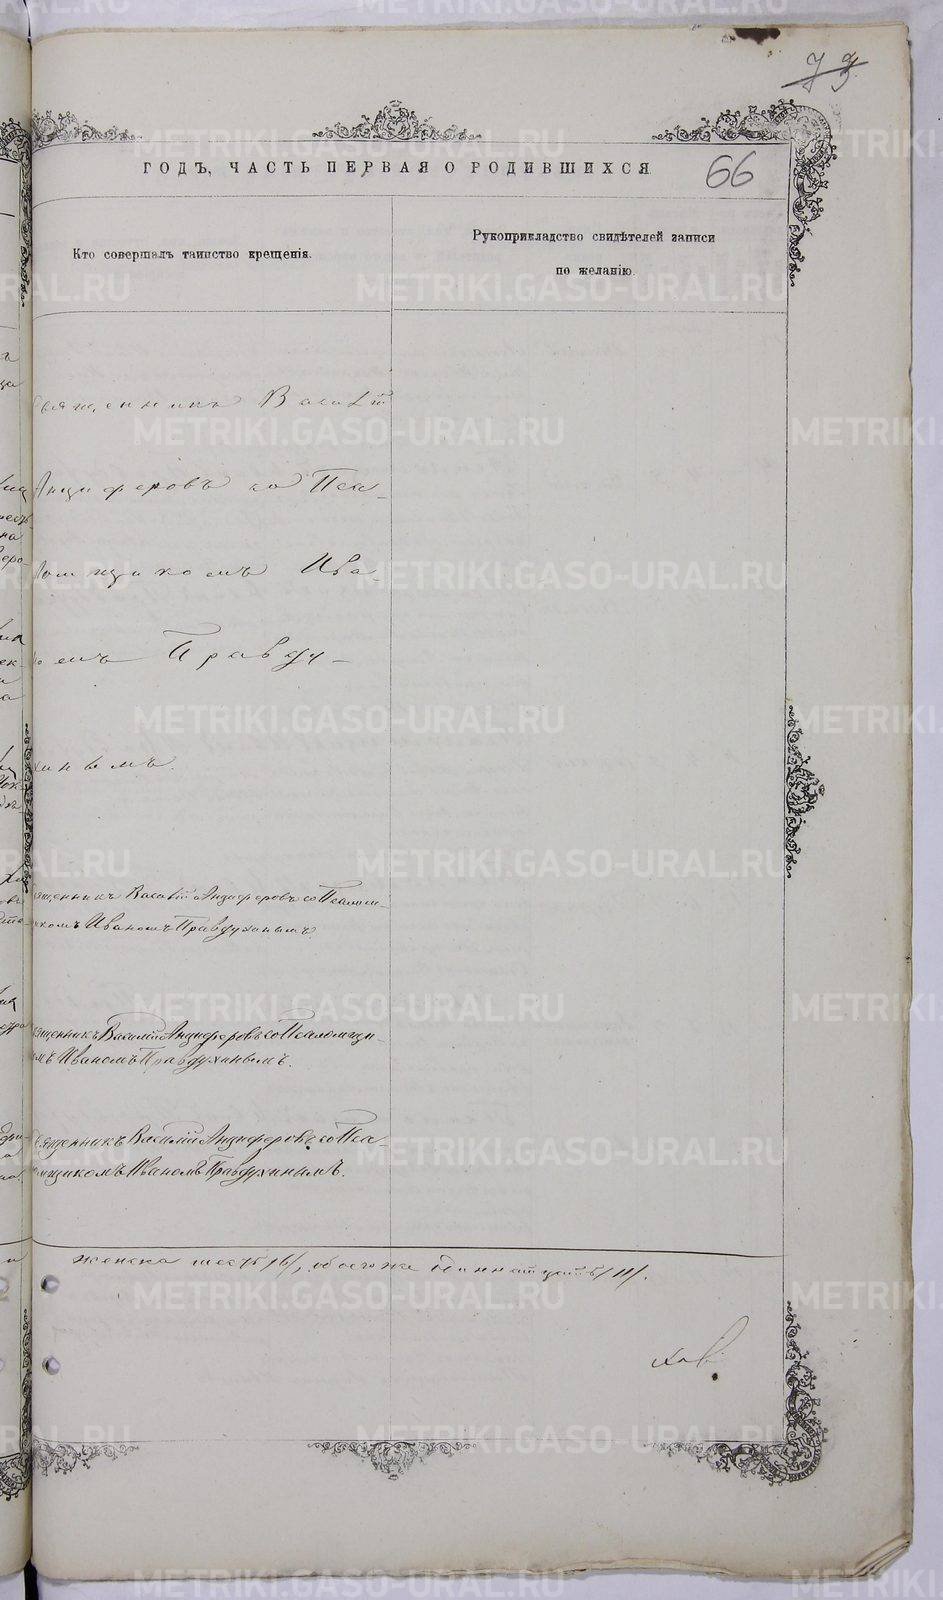 73
ГОДЪ, ЧАСТЬ ПЕРВАЯ О РОДИВШИХСЯ 66
Кто совершалъ таинство крещенія.
Рукоприкладство свидѣтелей записи
по желанію.
Священникъ Василій
Анциферовъ со Пса-
ломщикомъ Ива-
номъ Правду-
хинымъ.
Священникъ Василій Анциферовъ со Псаломщ-
икомъ Иваномъ Правдухинымъ.
Священникъ Василій Анциферовъ со Псаломщи-
комъ Иваномъ Правдухинымъ.
Священникъ Василій Анциферовъ со Пса-
ломщикомъ Иваномъ Правдухинымъ.
женска шесть /6/, обоего же одиннатцать /11/.
METRIKI.GASO-URAL.RU